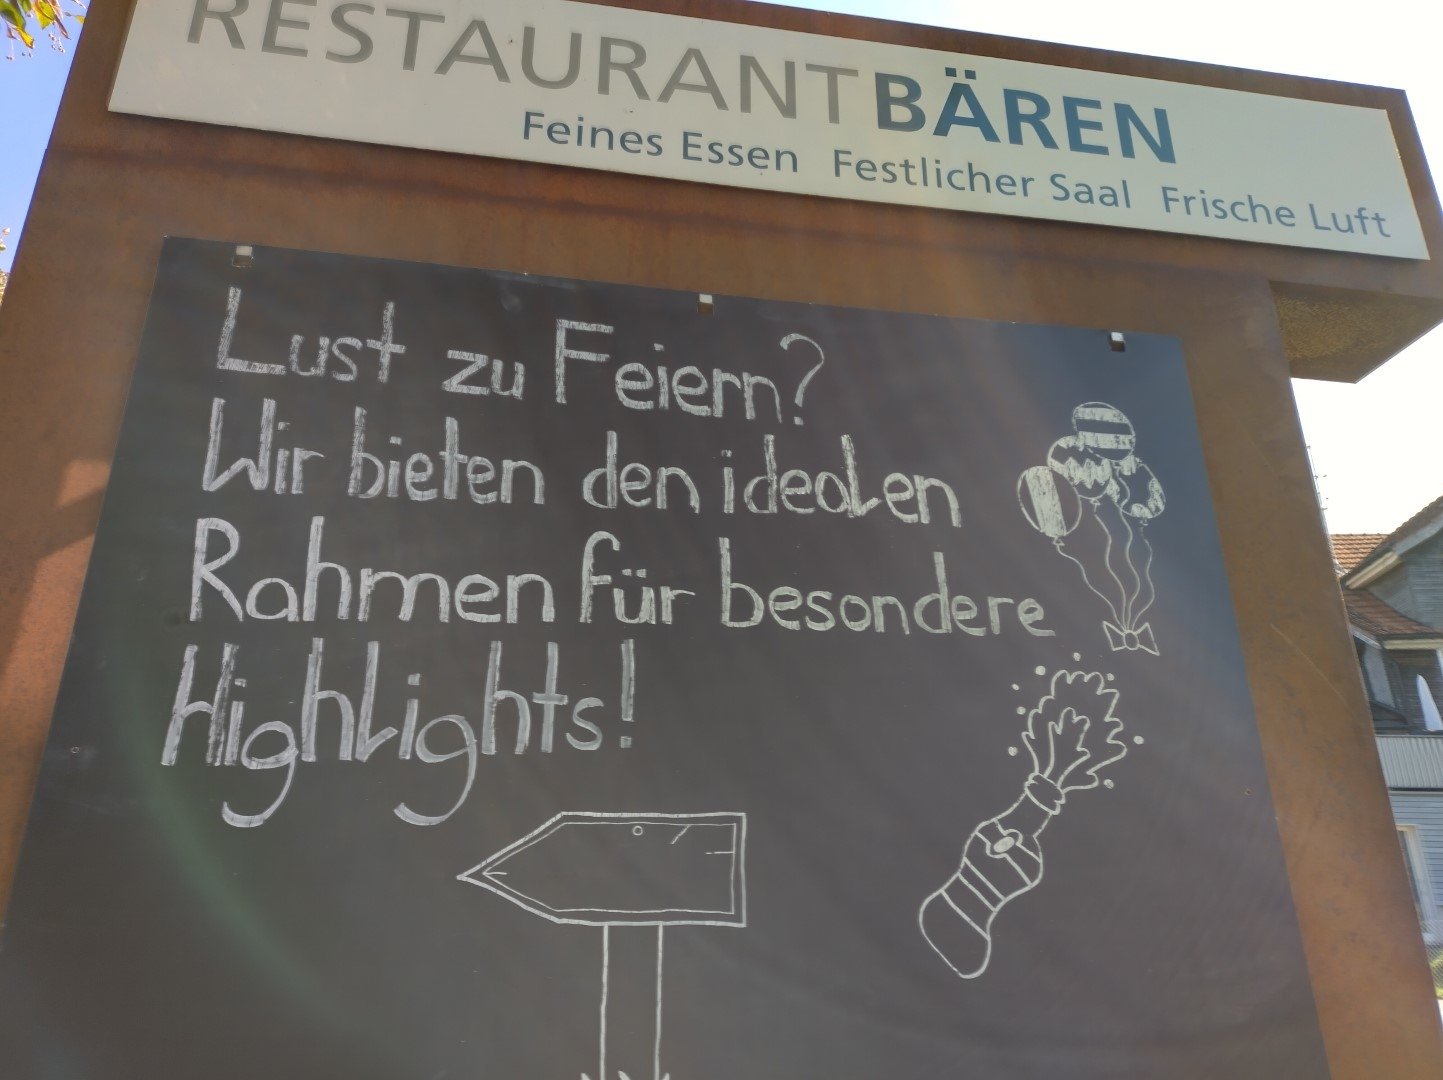 RESTAURANT BÄREN
Feines Essen Festlicher Saal Frische Luft
Lust zu Feiern?
Wir bieten den idealen
Rahmen für besondere
Highlights!